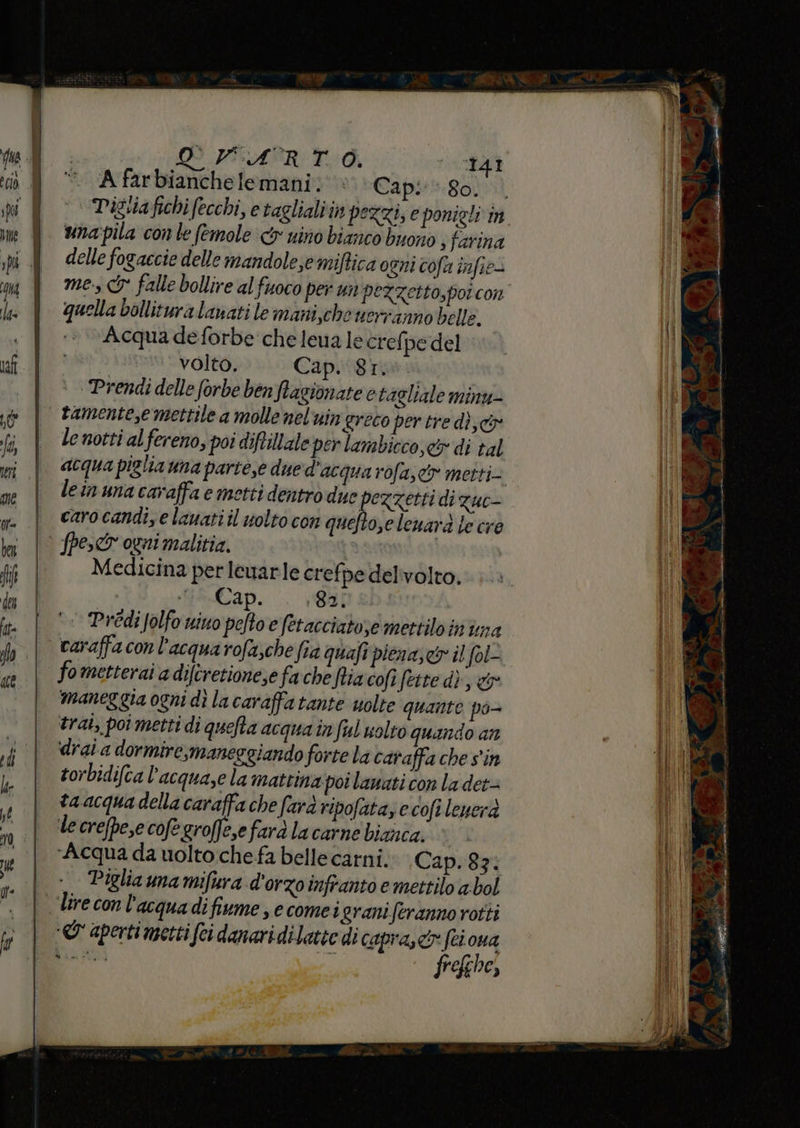 Q V A R T O. 141
A far bianche le mani. Cap. 80.
Piglia fichi ſecchi, e tagliali in pezzi, e ponigli in
una pila con le ſemole & uino bianco buono, farina
delle fogaccie delle mandole, e miſtica ogni coſa inſie-
me, & falle bollire al fuoco per un pezzetto, poi con
quella bollitura lauati le mani, che uerranno belle.
Acqua de ſorbe che leua le creſpe del
volto. Cap. 81.
Prendi delle ſorbe ben ſtagionate e tagliale minu-
tamente, e mettile a molle nel uin greco per tre dì, &
le notti al ſereno, poi diſtillale per lambicco, & di tal
acqua piglia una parte, e due d'acqua roſa, & metti-
le in una caraffa e metti dentro due pezzetti di zuc-
caro candi, e lauati il uolto con queſto, e leuarà le cre
ſpe, & ogni malitia.
Medicina per leuar le creſpe del volto.
Cap. 82.
Prẽdi ſolfo uiuo peſto e ſetacciato, e mettilo in una
caraffa con l'acqua roſa, che ſia quaſi piena, & il ſol-
fo metterai a diſcretione, e fa che ſtia coſi ſette dì, &
maneggia ogni dì la caraffa tante uolte quante po-
trai, poi metti di queſta acqua in ſul uolto quando an
drai a dormire, maneggiando forte la caraffa che s'in
torbidiſca l'acqua, e la mattina poi lauati con la det-
ta acqua della caraffa che ſarà ripoſata, e coſi leuerà
le creſpe, e coſe groſſe, e farà la carne bianca.
Acqua da uolto che fa belle carni. Cap. 83.
Piglia una miſura d'orzo infranto e mettilo a bol
lire con l'acqua di fiume, e come i grani ſeranno rotti
& aperti metti ſei danari di latte di capra, & ſei oua
freſche,